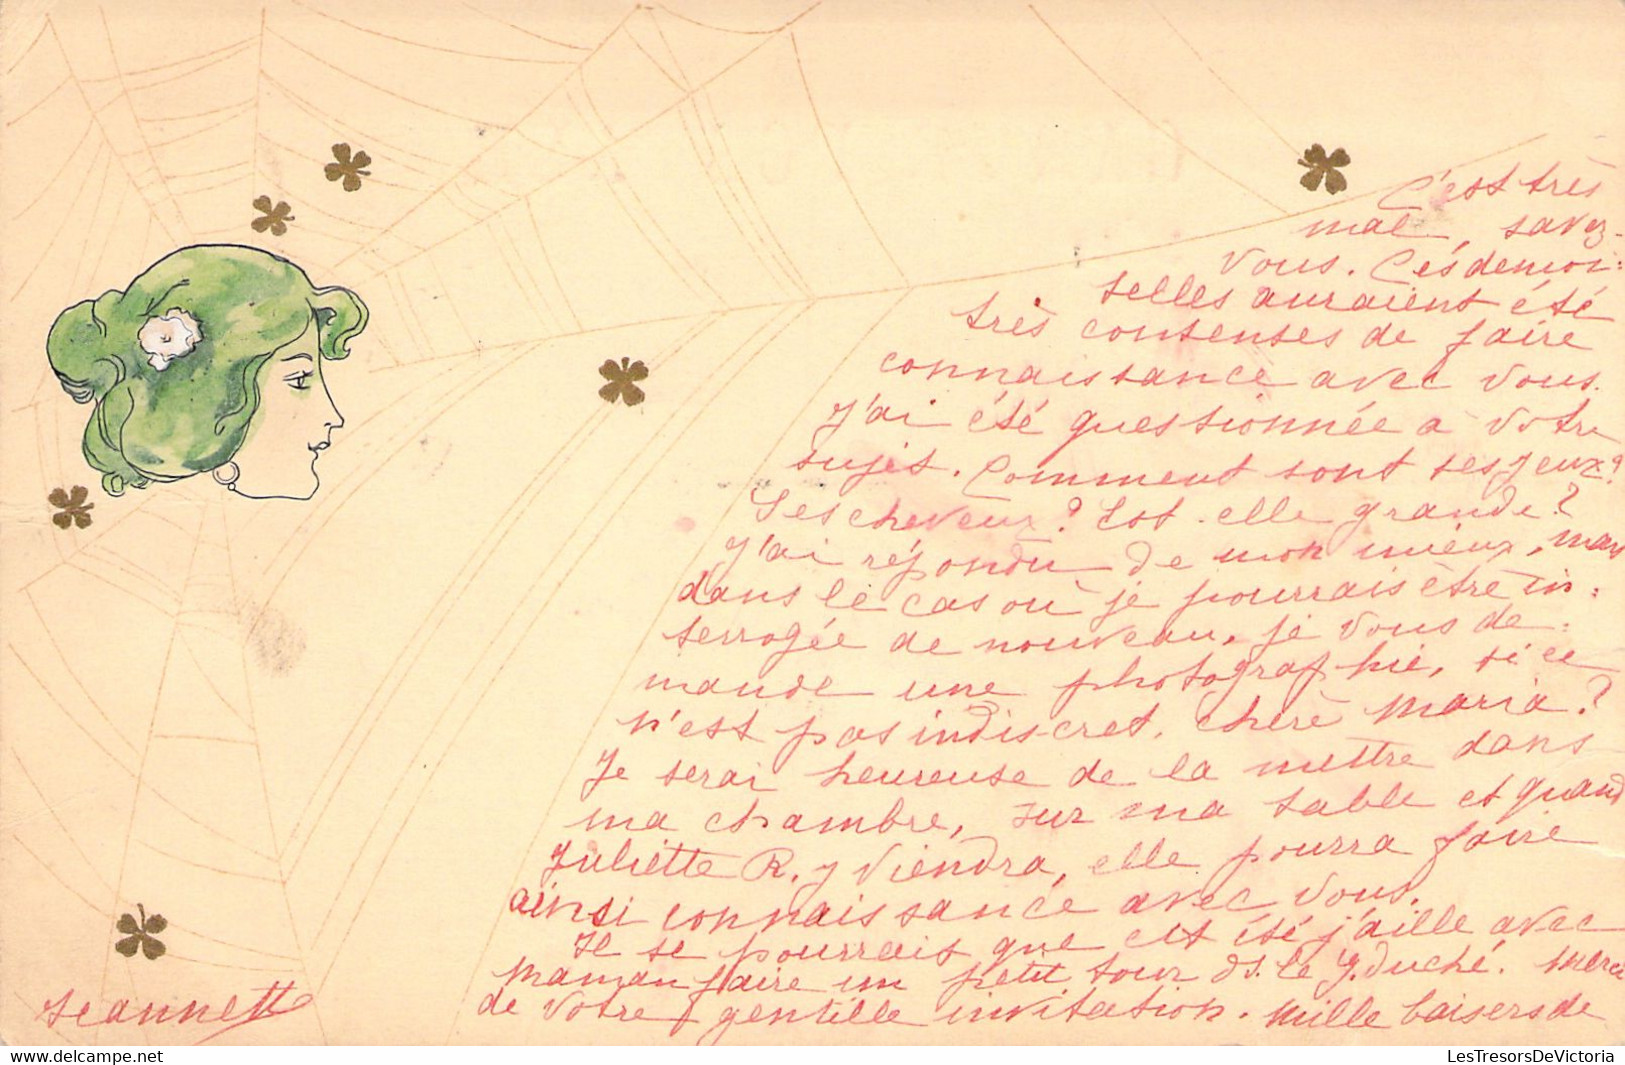 C'est très
mal, savez-
vous. Ces demoi-
selles auraient été
très contentes de faire
connaissance avec vous.
J'ai été questionnée à votre
sujet. Comment sont ses yeux?
Ses cheveux? Est-elle grande?
J'ai répondu de mon mieux, mais
dans le cas où je pourrais être in-
terrogée de nouveau, je vous de-
mande une photographie, si ce
n'est pas indiscret, chère Maria?
Je serai heureuse de la mettre dans
ma chambre, sur ma table et quand
Juliette R. y viendra, elle pourra faire
ainsi connaissance avec vous.
Il se pourrait que cet été j'aille avec
maman faire un petit tour ds. le G. Duché. Merci
de votre gentille invitation. Mille baisers de
Jeannette
LesTresorsDeVictoria
www.delcampe.net